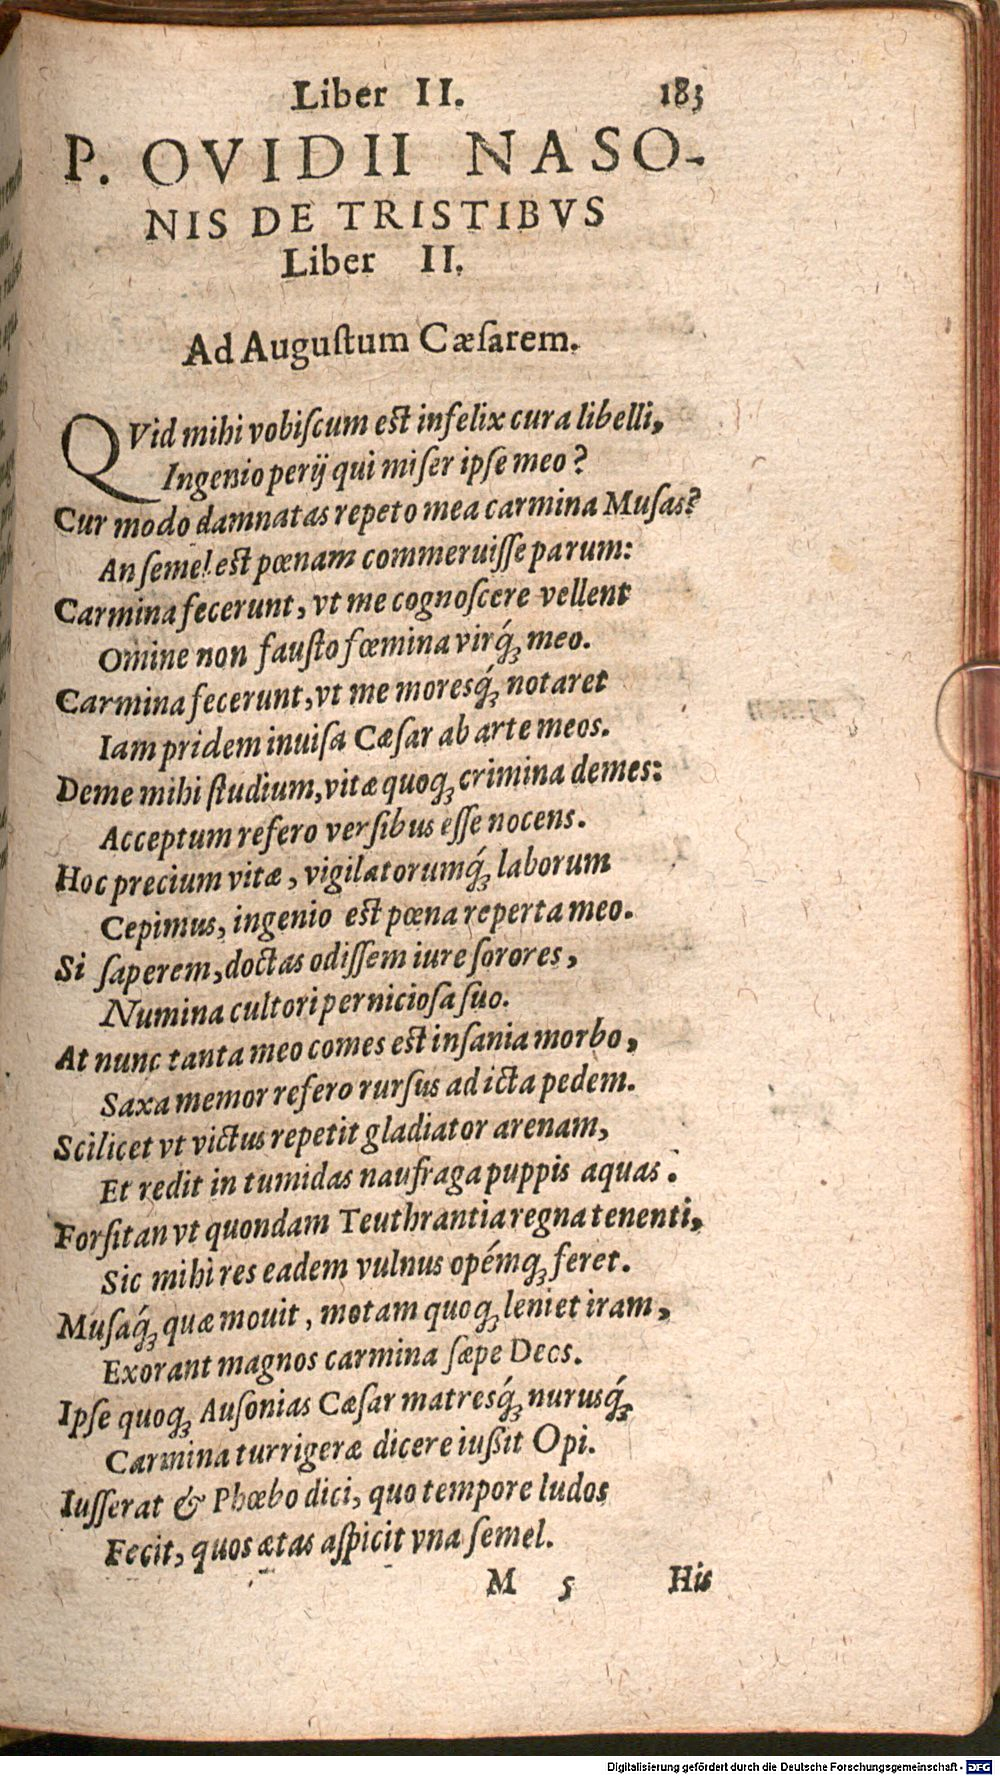 Liber II. 183
P. OVIDII NASO-
NIS DE TRISTIBVS
Liber II.
Ad Auguſtum Cæſarem.
QVid mihi vobiſcum eſt infelix cura libelli,
Ingenio perij qui miſer ipſe meo?
Cur modo damnatas repeto mea carmina Muſas?
An ſemel eſt pœnam commeruiſſe parum:
Carmina fecerunt, vt me cognoſcere vellent
Omine non fauſto fœmina virq́; meo.
Carmina fecerunt, vt me moresq́; notaret
Iam pridem inuiſa Cæſar ab arte meos.
Deme mihi ſtudium, vitæ quoq; crimina demes:
Acceptum refero verſibus eſſe nocens.
Hoc precium vitæ, vigilatorumq́; laborum
Cepimus, ingenio eſt pœna reperta meo.
Si ſaperem, doctas odiſſem iure ſorores,
Numina cultori pernicioſa ſuo.
At nunc tanta meo comes eſt inſania morbo,
Saxa memor refero rurſus ad icta pedem.
Scilicet vt victus repetit gladiator arenam,
Et redit in tumidas naufraga puppis aquas.
Forſitan vt quondam Teuthrantia regna tenenti,
Sic mihi res eadem vulnus opémq; feret.
Muſaq́; quæ mouit, motam quoq; leniet iram,
Exorant magnos carmina ſæpe Deos.
Ipſe quoq; Auſonias Cæſar matresq́; nurusq́;
Carmina turrigeræ dicere iußit Opi.
Iuſſerat & Phœbo dici, quo tempore ludos
Fecit, quos ætas aſpicit vna ſemel.
M 5 His
Digitalisierung gefördert durch die Deutsche Forschungsgemeinschaft - DFG